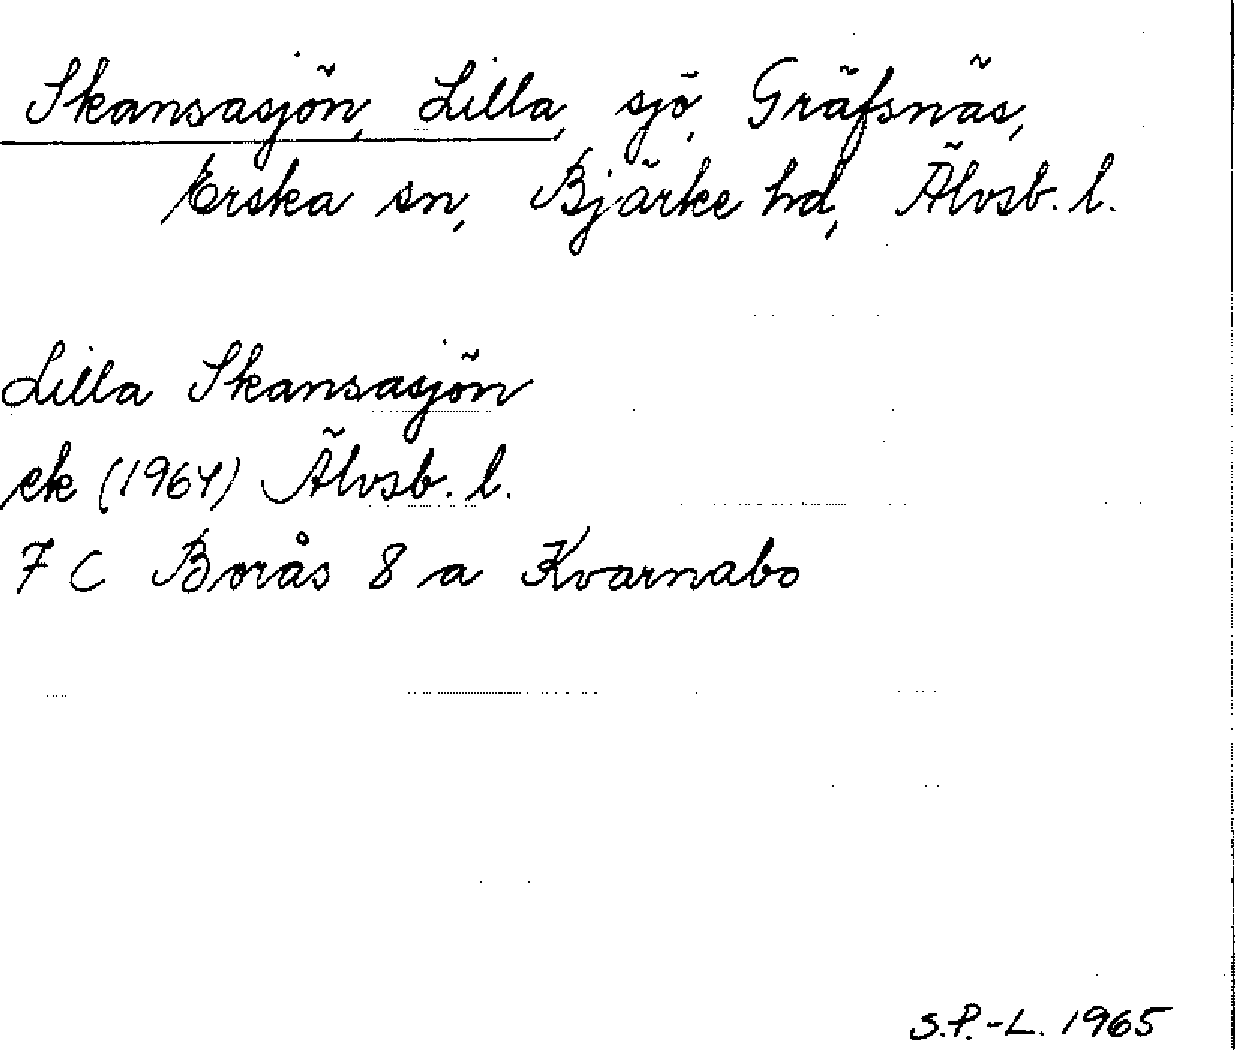 Skansasjön, Lilla, sjö, Gräfsnäs,
Erska sn, Bjärke hd, Älvsb. l.
Lilla Skansasjön
ek (1964) Älvsb. l.
7 C Borås 8 a Kvarnabo
S.P.-L. 1965